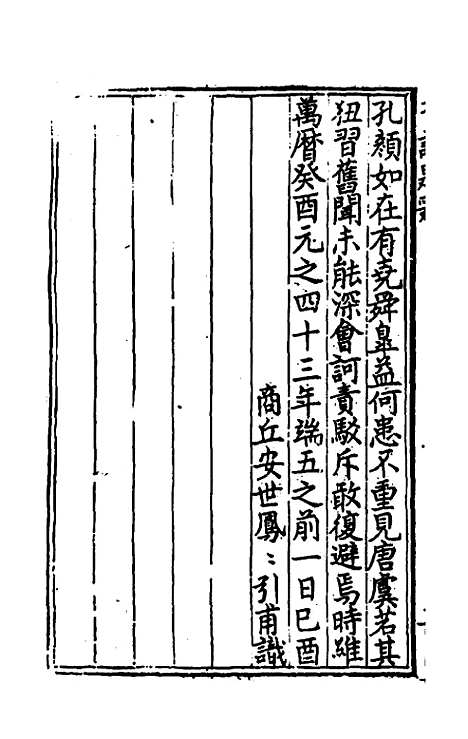 孔顏如在有堯舜皐益何患不重見唐虞若其
狃習舊聞未能深會訶責駁斥敢復避焉時維
萬曆癸酉元之四十三年端五之前一日巳酉
商丘安世鳳〻引甫識